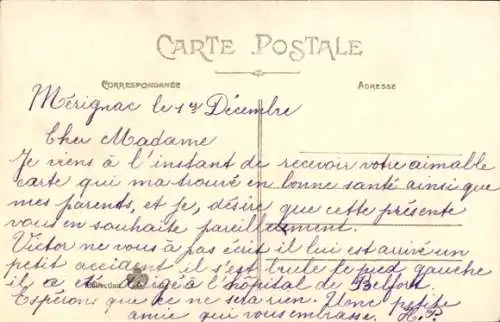 CARTE POSTALE
CORRESPONDANCE
ADRESSE
Mérignac le 1er Décembre
Cher Madame
Je viens à l'instant de recevoir votre aimable
carte qui ma trouvé en bonne santé ainsi que
mes parents, et je, désire que cette présente
vous en souhaite pareillement.
Victor ne vous à pas écrit il lui est arrivé un
petit accident il s'est brulé le pied gauche
il a été dirigé à l'hôpital de Belfort
Espérons que ce ne sera rien. Une petite
amie qui vous embrasse. H.P